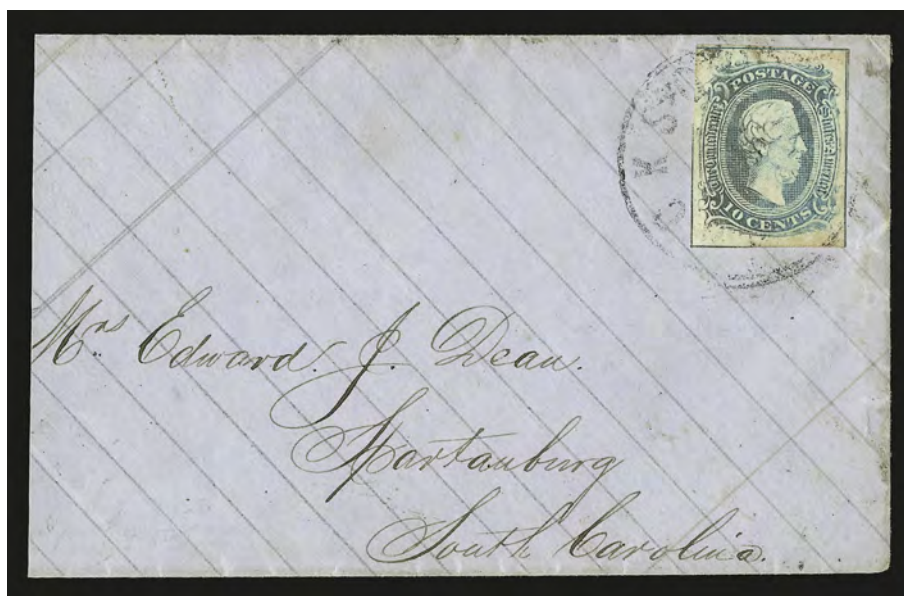 POSTAGE
The Confederate States of America
10 CENTS
Mrs Edward. J. Dean.
Spartanburg
South Carolina.